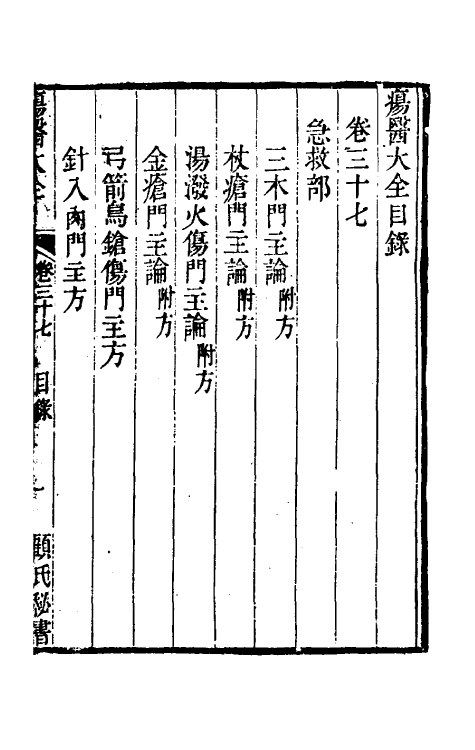 瘍醫大全目錄
卷三十七
急救部
三木門主論附方
杖瘡門主論附方
湯潑火傷門主論附方
金瘡門主論附方
弓箭鳥鎗傷門主方
針入肉門主方
瘍醫大全
卷三十七 目錄
顧氏秘書